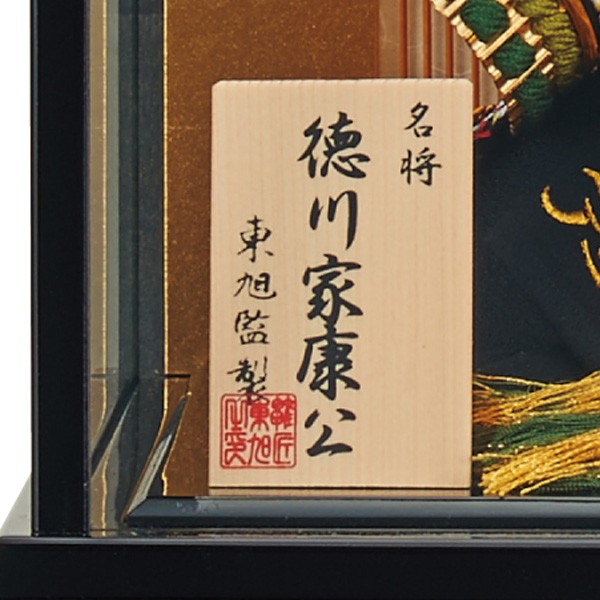 名将
徳川家康公
東旭監製
雛匠
東旭
之印